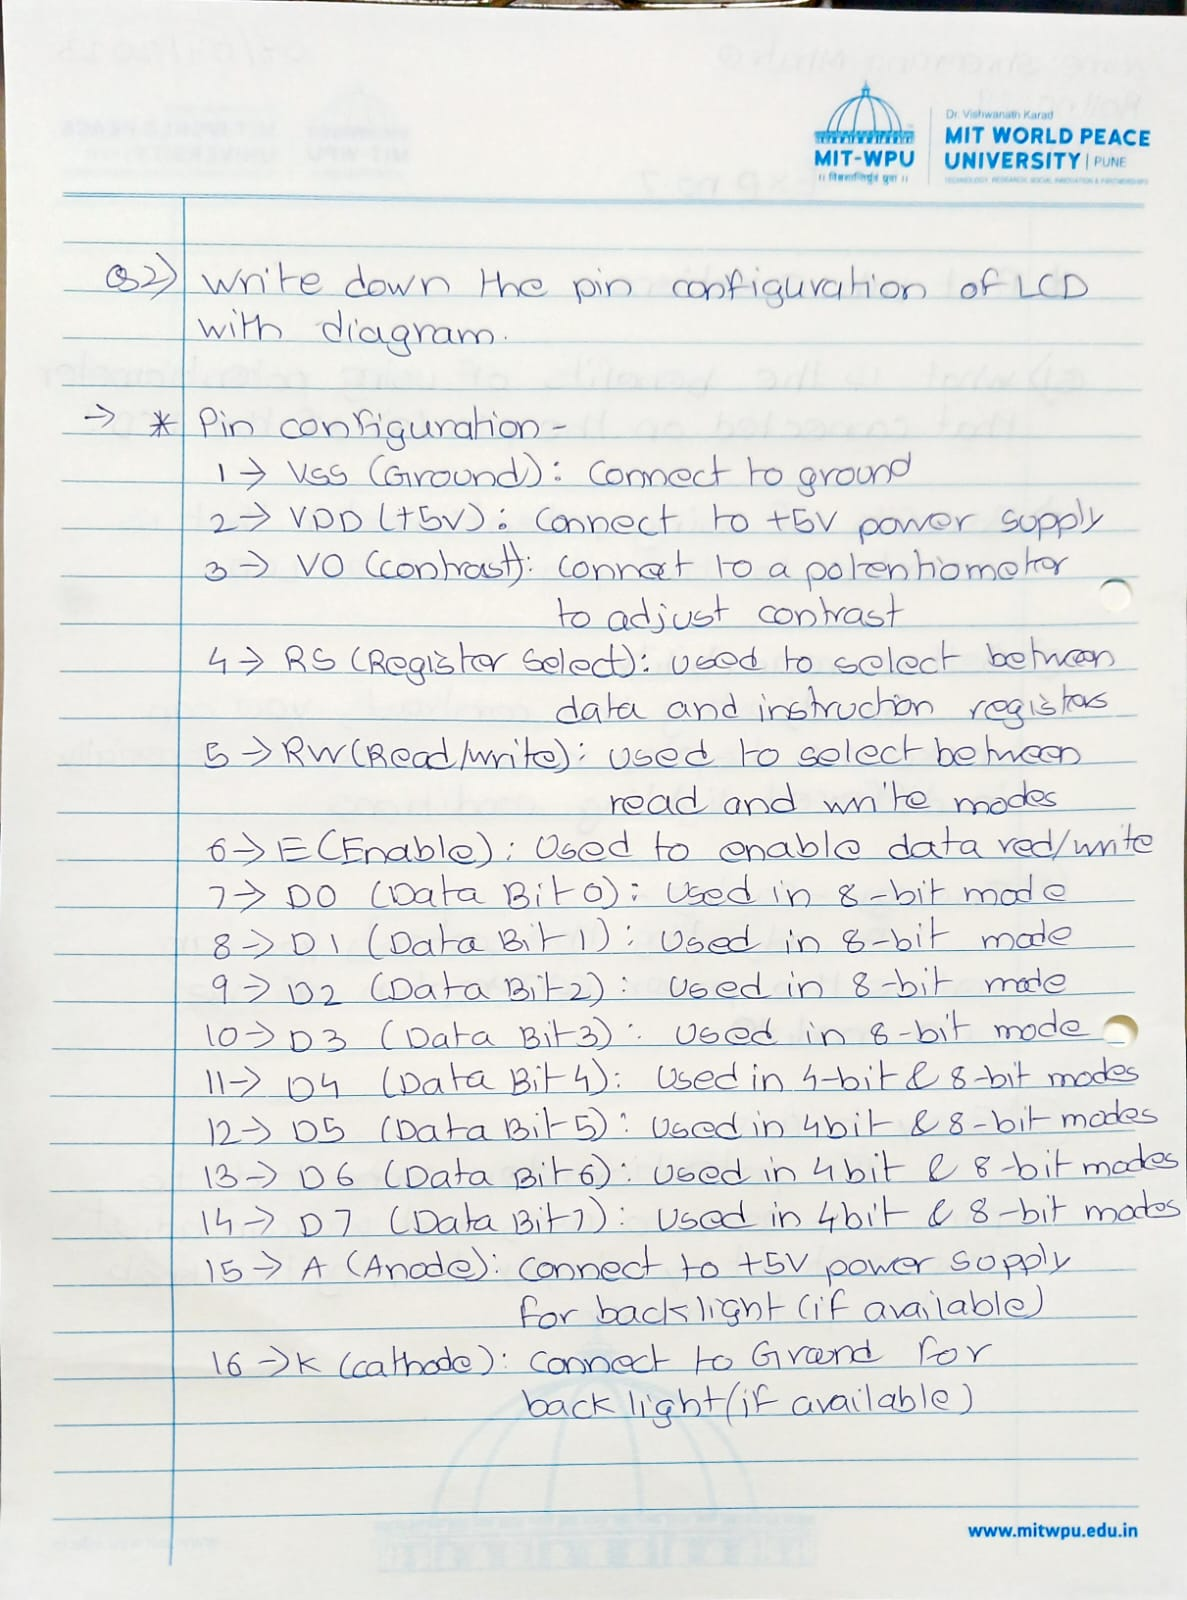 Dr. Vishwanath Karad
MIT WORLD PEACE
UNIVERSITY | PUNE
TECHNOLOGY, RESEARCH, SOCIAL INNOVATION & PARTNERSHIPS
MIT-WPU
॥ विश्वशान्तिर्ध्रुवं ध्रुवा ॥
Q2) Write down the pin configuration of LCD
with diagram.
→ * Pin configuration -
1 → VSS (Ground): Connect to ground
2 → VDD (+5V): Connect to +5V power supply
3 → VO (contrast): connect to a potentiometer
to adjust contrast
4 → RS (Register Select): used to select between
data and instruction registers
5 → RW (Read/write): used to select between
read and write modes
6 → E (Enable): Used to enable data red/write
7 → D0 (Data Bit 0): Used in 8-bit mode
8 → D1 (Data Bit 1): Used in 8-bit mode
9 → D2 (Data Bit 2): Used in 8-bit mode
10 → D3 (Data Bit 3): Used in 8-bit mode
11 → D4 (Data Bit 4): Used in 4-bit & 8-bit modes
12 → D5 (Data Bit 5): Used in 4bit & 8-bit modes
13 → D6 (Data Bit 6): Used in 4 bit & 8-bit modes
14 → D7 (Data Bit 7): Used in 4bit & 8-bit modes
15 → A (Anode): connect to +5V power supply
for backlight (if available)
16 → K (cathode): connect to Ground for
back light (if available)
www.mitwpu.edu.in